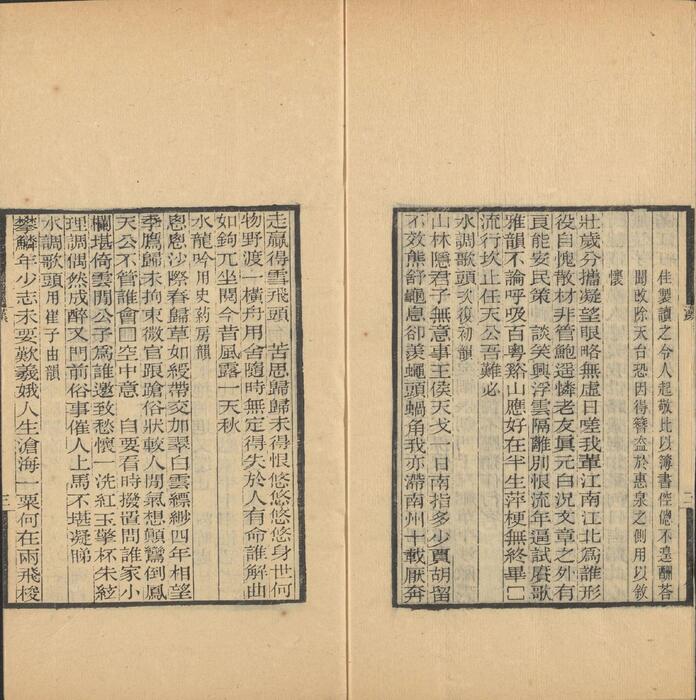 佳製讀之令人起敬比以簿書倥傯不遑酬荅
聞改除天台恐因得簪盍於惠泉之側用以敘
懷
壯歲分攜凝望眼略無虛日嗟我軰江南江北爲誰形
役自愧散材非管鮑遥憐老友真元白況文章之外有
良能安民策　談笑興浮雲隔離別恨流年逼試賡歌
雅韻不論呼吸百粤谿山應好在半生萍梗無終畢□
流行坎止任天公吾難必
水調歌頭次復初韻
山林隱君子無意事王侯天戈一日南指多少賈胡留
不效熊舒龜息卻羨蠅頭蝸角我亦滯南州十載厭奔
走贏得雪飛頭　苦思歸歸未得恨悠悠悠悠身世何
物野渡一橫舟用舍隨時無定得失於人有命誰解曲
如鉤兀坐閱今昔風露一天秋
水龍吟用史葯房韻
怱怱沙際春歸草如綬帶交加翠白雲縹緲四年相望
季鷹歸未拘束微官踉蹌俗狀較人閒氣想顛鸞倒鳳
天公不管誰會□空中意　自要看時撥置問誰家小
欄堪倚雲閒公子爲誰邀致愁懷一洗紅玉擎杯朱絃
理調偶然成醉又門前俗事催人上馬不堪凝睇
水調歌頭用崔子由韻
攀鱗年少志未要歎羲娥人生滄海一粟何在兩飛梭
二
三